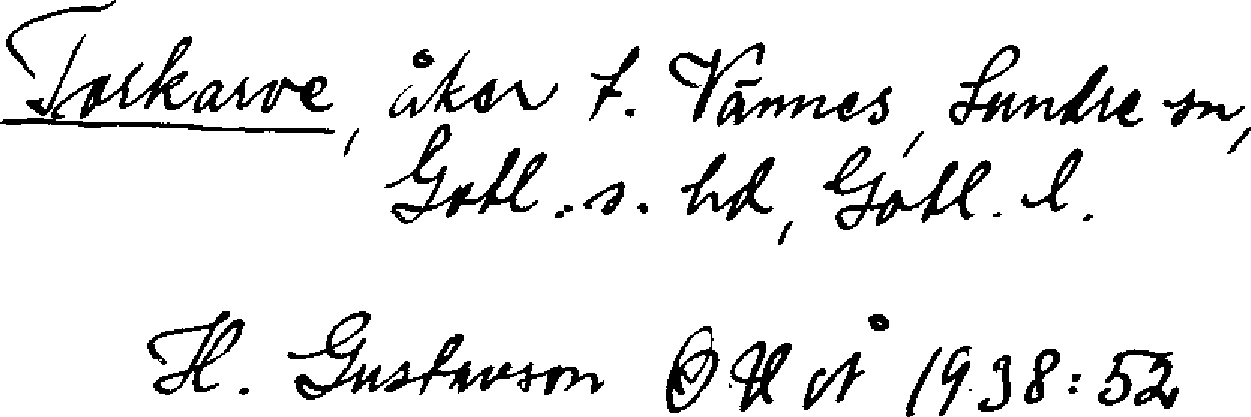 Torkarve, åker t. Vännes, Sundre sn,
Gotl. s. hd, Gotl. l.
H. Gustavson OHÅ 1938:52